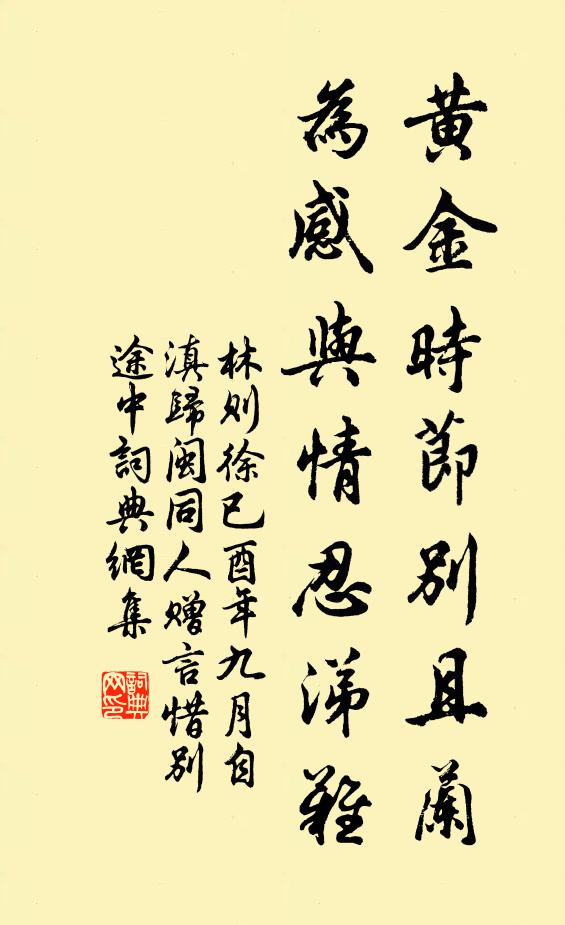 黄金時節別且蘭
為感輿情忍涕難
林則徐己酉年九月自
滇歸閩同人贈言惜別
途中詞典網集
詞典網印